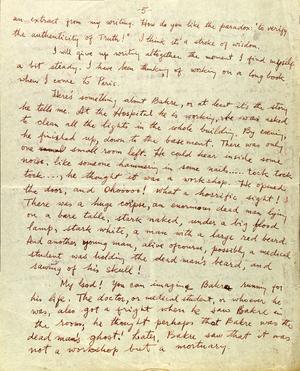 -5-
an extract from my writing. How do you like the paradox: "to verify
the authenticity of Truth!" I think it's a stroke of wisdom.
I will give up writing altogether the moment I find myself
a bit steady. I have been thinking of working on a long book
when I come to Paris.
Here's something about Bakre, or at least it's the story
he tells me. At the Hospital he is working, he was asked
to clean all the lights in the whole building. By evening,
he finished up, down to the basement. There was only
one small room left. He could hear inside some
noise, like someone hammering in some nail..... tock, tock
tock...., he thought it was a workshop. He opened
the door, and Ohoooo! what a horrific sight!
There was a huge corpse, an enormous dead man lying
on a bare table, stark naked, under a big flood
lamp, stark white, a man with a large red beard.
And another young man, alive ofcourse, possibly a medical
student was holding the dead man's beard, and
sawing of his skull!
My God! You can imagine Bakre running for
his life. The doctor, or medical student, or whoever he
was, also got a fright when he saw Bakre in
the room, he thought perhaps that Bakre was the
dead man's ghost! Later, Bakre saw that it was
not a workshop but a mortuary.